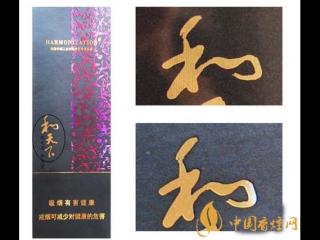 HARMONIZATION
和天下
吸烟有害健康
戒烟可减少对健康的危害
和
和
中国香烟网